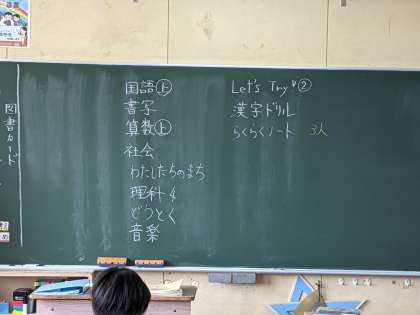 図書カード
国語㊤
書写
算数㊤
社会
わたしたちのまち
理科4
どうとく
音楽
Let's Try! ②
漢字ドリル
らくらくノート 3人